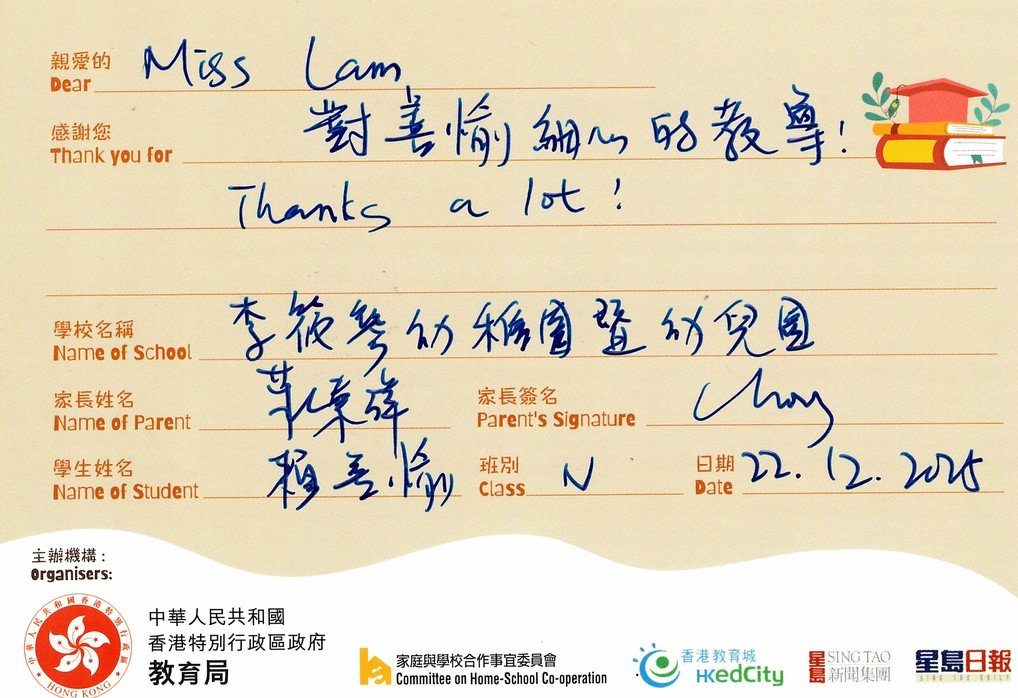 親愛的
Dear Miss Lam
感謝您
Thank you for 對善愉細心的教導!
Thanks a lot!
學校名稱
Name of School 李筱琴幼稚園暨幼兒園
家長姓名
Name of Parent
家長簽名
Parent's Signature
學生姓名
Name of Student 賴善愉
班別
Class N
日期
Date 22.12.2025
主辦機構:
Organisers:
中華人民共和國香港特別行政區
HONG KONG
中華人民共和國
香港特別行政區政府
教育局
家庭與學校合作事宜委員會
Committee on Home-School Co-operation
香港教育城
HKedCity
星島
SING TAO
新聞集團
星島日報
SING TAO DAILY